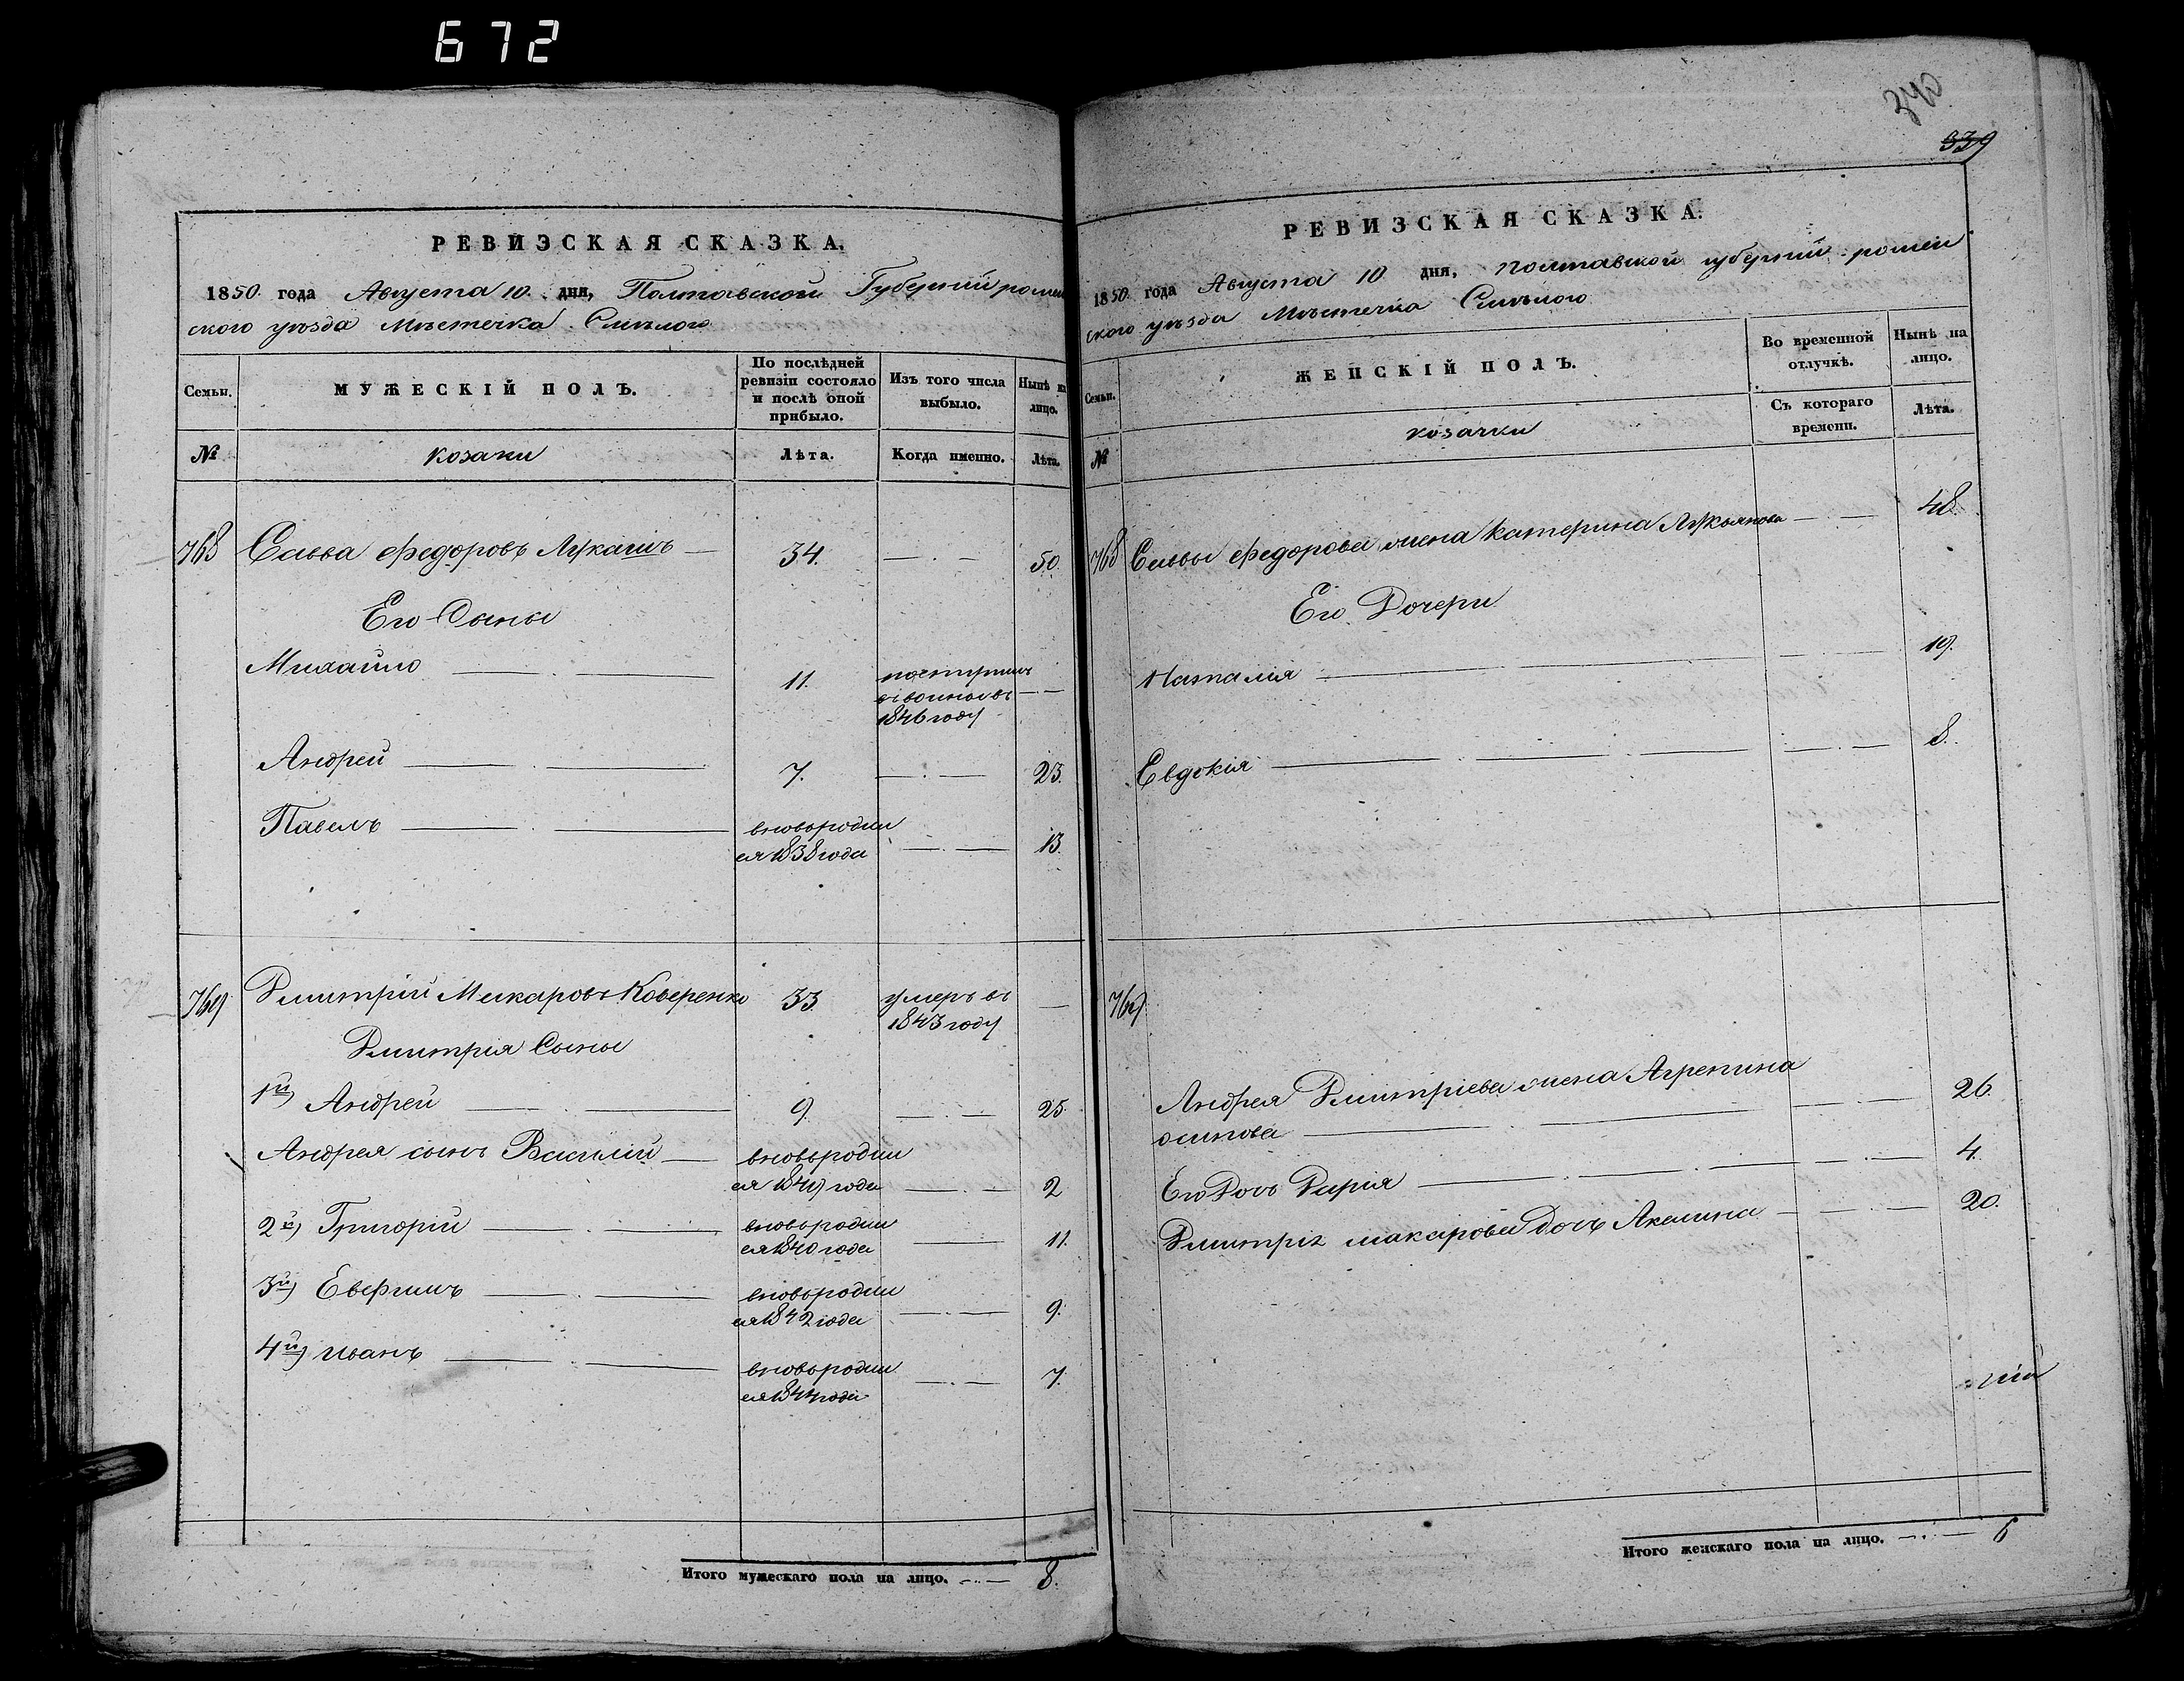 672
РЕВИЗСКАЯ СКАЗКА.
1850 года Августа 10 дня, Полтавской Губерній ромен
ского уѣзда Мѣстечка Смѣлого
Семьи.
МУЖЕСКІЙ ПОЛЪ.
По послѣдней
ревизіи состояло
и послѣ оной
прибыло.
Изъ того числа
выбыло.
Нынѣ на
лицо.
№
козаки
Лѣта.
Когда именно.
Лѣта.
768 Савва Федоровъ Лукашъ 34. 50.
Его Сыны
Михайло 11.
1846 году
Андрей 7. 23.
Павелъ вновьродил
ся 1838 года 13.
769 Дмитрій Макаровъ Коверенко 33. умеръ въ
1843 году
Дмитрія Сыны
1й) Андрей 9. 25.
Андрея сынъ Василій вновьродил
ся 1849 года 2
2й) Григорій вновьродил
ся 1840 года 11.
3й) Евфимъ вновьродил
ся 1842 года 9.
4й) иванъ вновьродил
ся 1844 года 7.
Итого мужескаго пола на лицо. 8.
340
339
РЕВИЗСКАЯ СКАЗКА.
1850 года Августа 10 дня, полтавской губерній ромен
ского уѣзда Мѣстечка Смѣлого
Семьи.
ЖЕНСКІЙ ПОЛЪ.
Во временной
отлучкѣ.
Нынѣ на
лицо.
№
козачки
Съ котораго
времени.
Лѣта.
768 Саввы Федорова жена Катерина Лукьянова 48.
Его Дочери
Наталія 19.
Евдокія 8.
769
Андрея Дмитріева жена Агрепина
осипова 26.
Его Дочь Дарія 4.
Дмитрія макарова Дочь Акелина 20.
Итого женскаго пола на лицо. 6